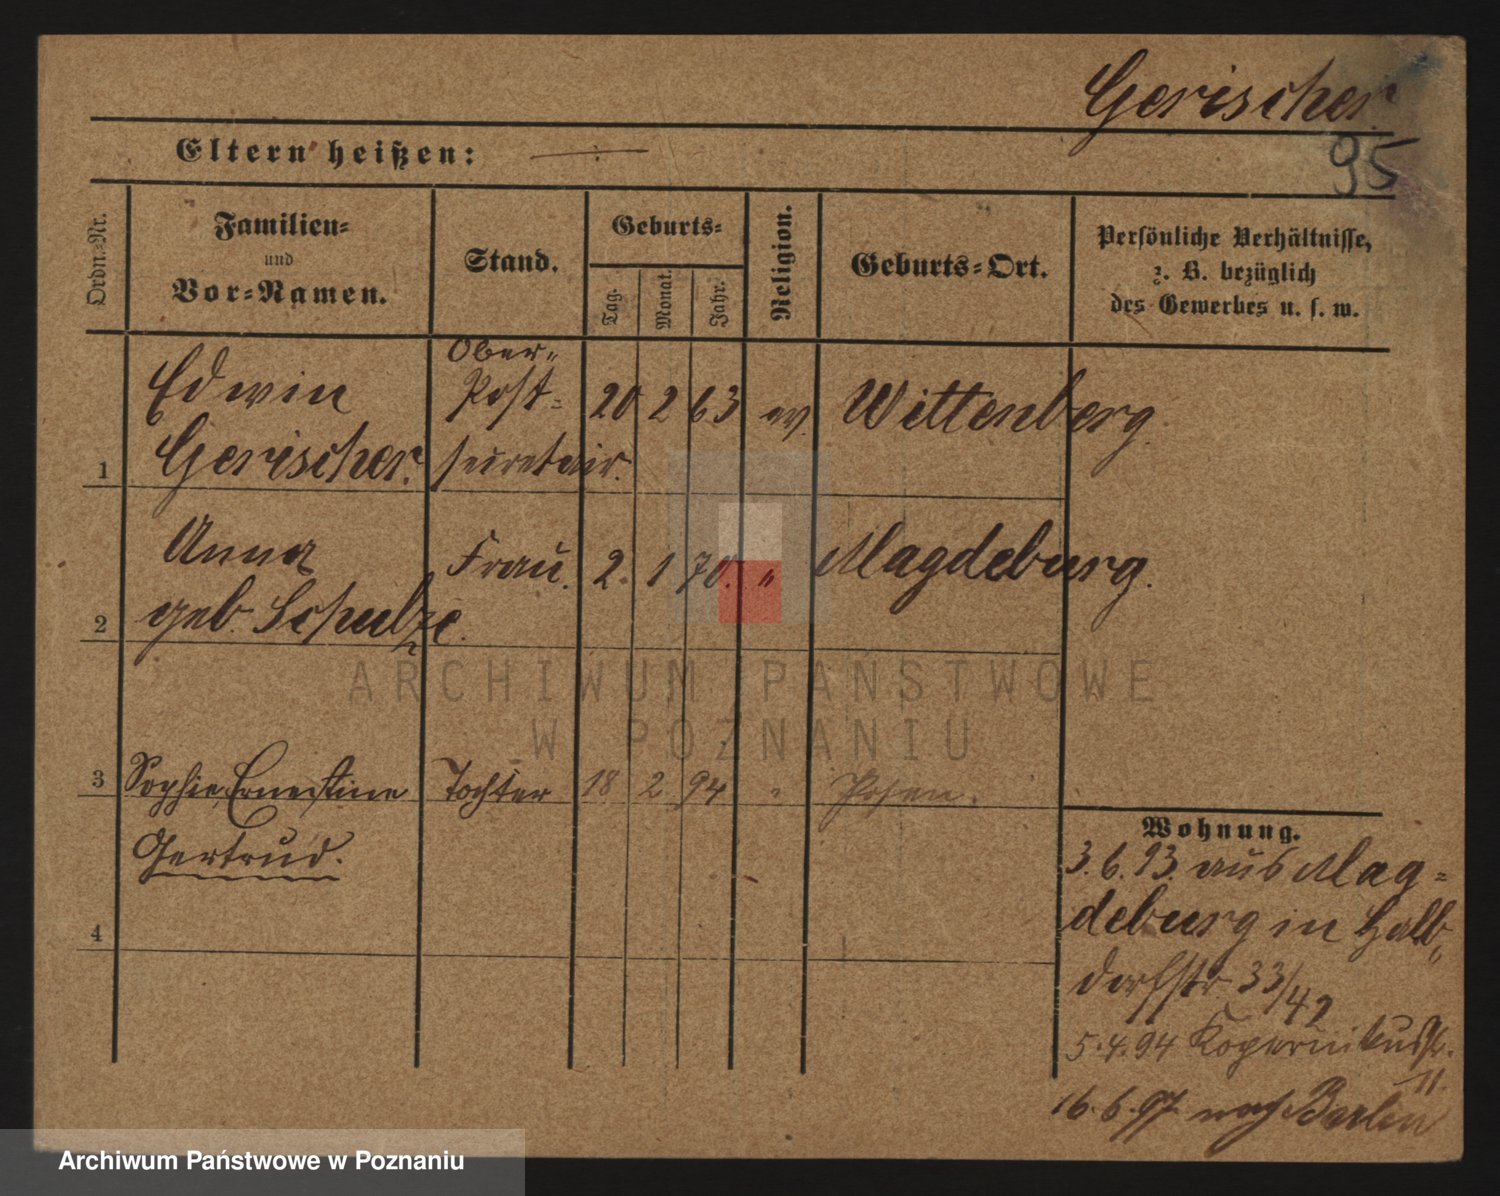 Gerischer.
95
Eltern heißen: —
Ordn.-Nr.
Familien-
und
Vor-Namen.
Stand.
Geburts-
Tag.
Monat.
Jahr.
Religion.
Geburts-Ort.
Persönliche Verhältnisse,
z. B. bezüglich
des Gewerbes u. s. w.
1
Edwin
Gerischer.
Ober-
Post-
secretair.
20 2 63 ev. Wittenberg.
2
Anna
geb. Schulze.
Frau. 2. 1 70. " Magdeburg.
ARCHIWUM PAŃSTWOWE
W POZNANIU
3 Sophie, Ernestine Tochter 18 2 94 " Posen.
Gertrud.
4
Wohnung.
3.6.93. aus Mag-
deburg in Halb-
dorfstr 33/42
5.4.94 Kopernikusstr.
11.
16.6.97 nach Berlin
Archiwum Państwowe w Poznaniu